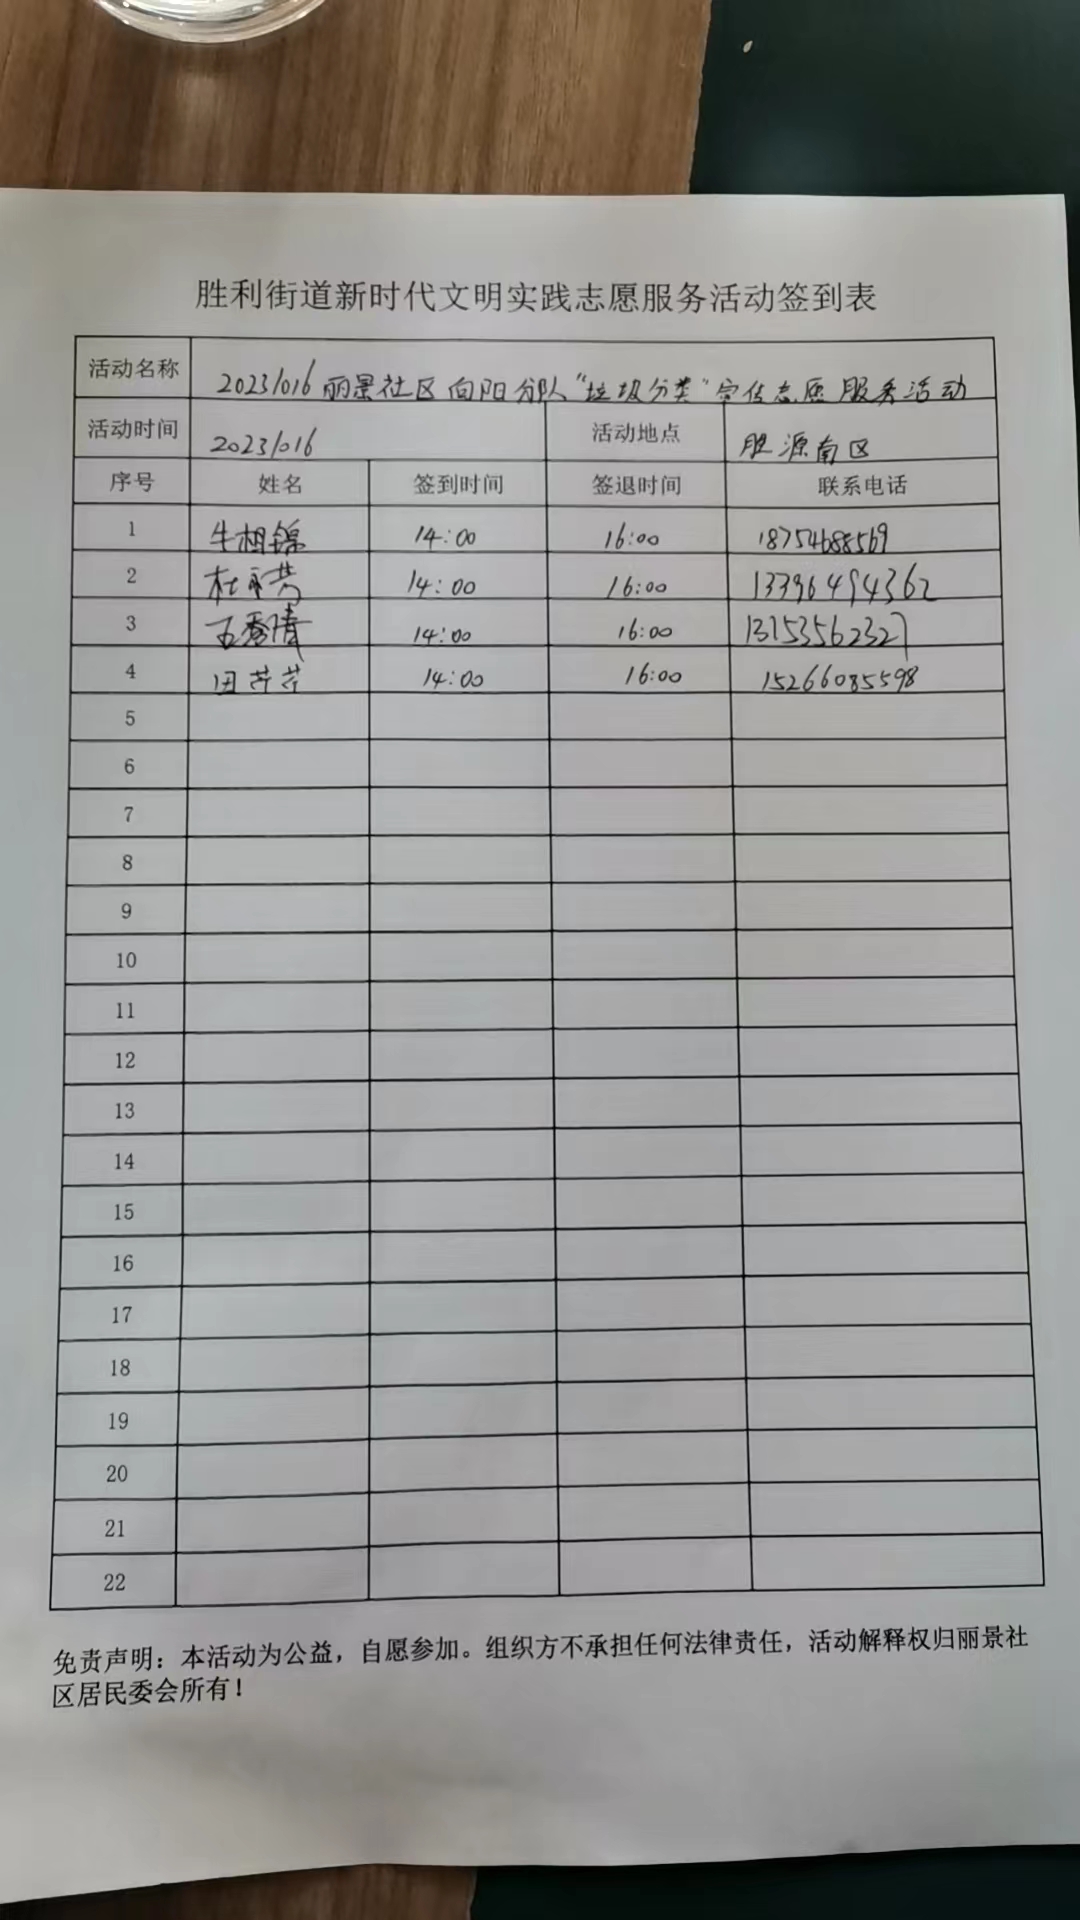 胜利街道新时代文明实践志愿服务活动签到表
活动名称 20231016丽景社区向阳分队“垃圾分类”宣传志愿服务活动
活动时间 20231016 活动地点 胜源南区
序号 姓名 签到时间 签退时间 联系电话
1 牛相锦 14:00 16:00 18754688569
2 杜丽芳 14:00 16:00 13396494362
3 王秀倩 14:00 16:00 13153562327
4 田芹芹 14:00 16:00 15266085598
5
6
7
8
9
10
11
12
13
14
15
16
17
18
19
20
21
22
免责声明：本活动为公益，自愿参加。组织方不承担任何法律责任，活动解释权归丽景社
区居民委会所有！